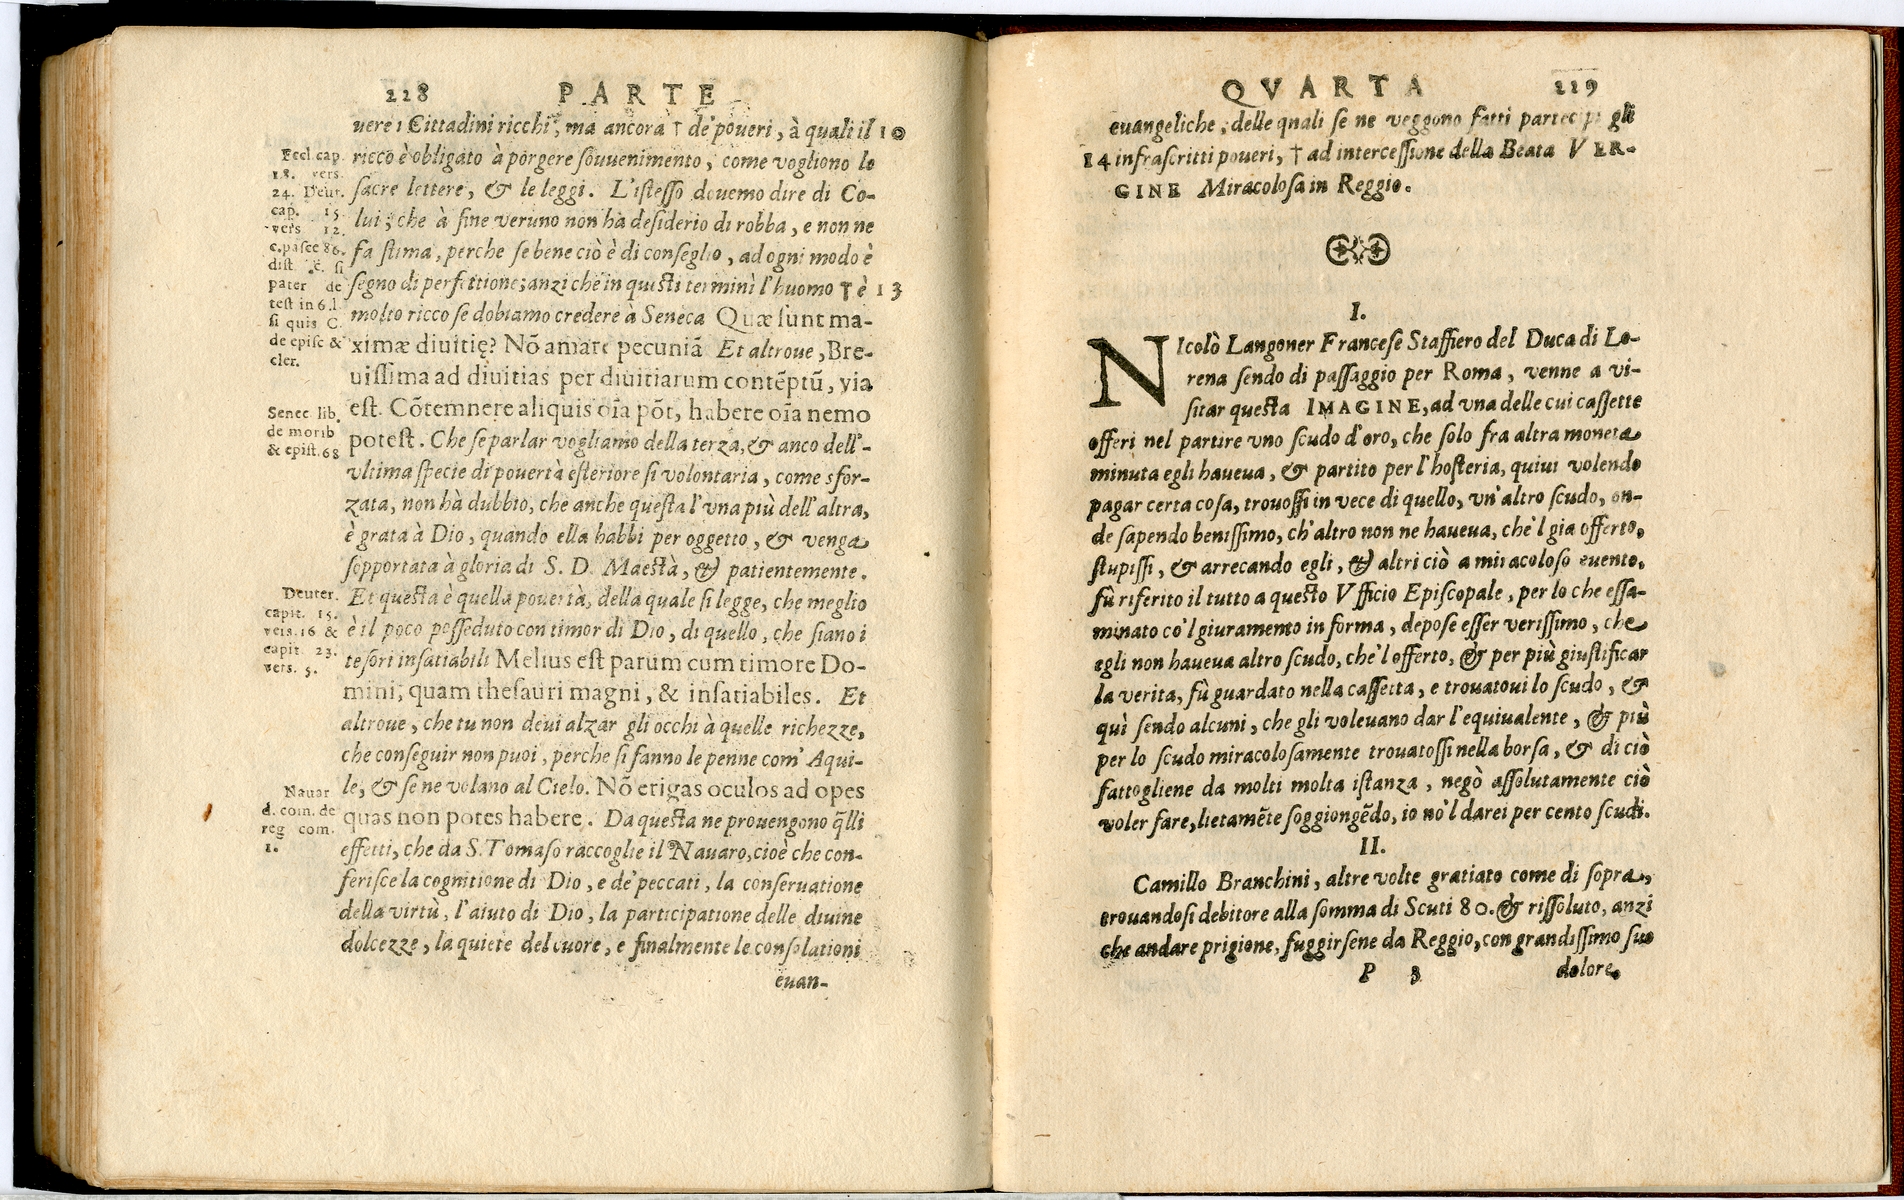 228 PARTE
uere i Cittadini ricchi, ma ancora † de' poueri, à quali il 10
ricco è obligato à porgere souuenimento, come vogliono le
sacre lettere, & le leggi. L'istesso douemo dire di Co-
lui, che à fine veruno non hà desiderio di robba, e non ne
fa stima, perche se bene ciò è di conseglio, ad ogni modo è
segno di perfettione; anzi che in questi termini l'huomo † è 13
molto ricco se dobiamo credere à Seneca Quæ sunt ma-
ximæ diuitię? Nō amare pecuniā Et altroue, Bre-
uissima ad diuitias per diuitiarum contēptū, via
est. Cōtemnere aliquis oīa pōt, habere oīa nemo
potest. Che se parlar vogliamo della terza, & anco dell'-
vltima specie di pouertà esteriore sì volontaria, come sfor-
zata, non hà dubbio, che anche questa l'vna più dell'altra,
è grata à Dio, quando ella habbi per oggetto, & venga
sopportata à gloria di S. D. Maestà, & patientemente.
Et questa è quella pouertà, della quale si legge, che meglio
è il poco posseduto con timor di Dio, di quello, che siano i
tesori insatiabili Melius est parum cum timore Do-
mini, quam thesauri magni, & insatiabiles. Et
altroue, che tu non deui alzar gli occhi à quelle richezze,
che conseguir non puoi, perche si fanno le penne com' Aqui-
le, & se ne volano al Cielo. Nō erigas oculos ad opes
quas non potes habere. Da questa ne prouengono q̄lli
effetti, che da S. Tomaso raccoglie il Nauaro, cioè che con-
ferisce la cognitione di Dio, e de' peccati, la conseruatione
della virtù, l'aiuto di Dio, la participatione delle diuine
dolcezze, la quiete del cuore, e finalmente le consolationi
euan-
Eccl. cap.
18. vers.
24. Deut.
cap. 15.
vers 12.
c. pasce 86.
dist. c. si
pater de
test in 6. l.
si quis C.
de episc &
cler.
Senec lib.
de morib
& epist. 68
Deuter.
capit. 15.
vers. 16 &
capit. 23.
vers. 5.
Nauar
d. com. de
reg com.
1.
QVARTA 229
euangeliche, delle quali se ne veggono fatti partecipi gli
14 infrascritti poueri, † ad intercessione della Beata VER-
GINE Miracolosa in Reggio.
I.
NIcolò Langoner Francese Staffiero del Duca di Lo-
rena sendo di passaggio per Roma, venne a vi-
sitar questa IMAGINE, ad vna delle cui cassette
offeri nel partire vno scudo d'oro, che solo fra altra moneta
minuta egli haueua, & partito per l'hosteria, quiui volendo
pagar certa cosa, trouossi in vece di quello, vn'altro scudo, on-
de sapendo benissimo, ch'altro non ne haueua, che'l gia offerto,
stupissi, & arrecando egli, & altri ciò a miracoloso euento,
fù riferito il tutto a questo Vfficio Episcopale, per lo che essa-
minato co'l giuramento in forma, depose esser verissimo, che
egli non haueua altro scudo, che'l offerto, & per più giustificar
la verita, fù guardato nella cassetta, e trouatoui lo scudo, &
quì sendo alcuni, che gli voleuano dar l'equiualente, & più
per lo scudo miracolosamente trouatossi nella borsa, & di ciò
fattogliene da molti molta istanza, negò assolutamente ciò
voler fare, lietamēte soggiongēdo, io no'l darei per cento scudi.
II.
Camillo Branchini, altre volte gratiato come di sopra,
trouandosi debitore alla somma di Scuti 80. & rissoluto, anzi
che andare prigione, fuggirsene da Reggio, con grandissimo suo
P 3 dolore,